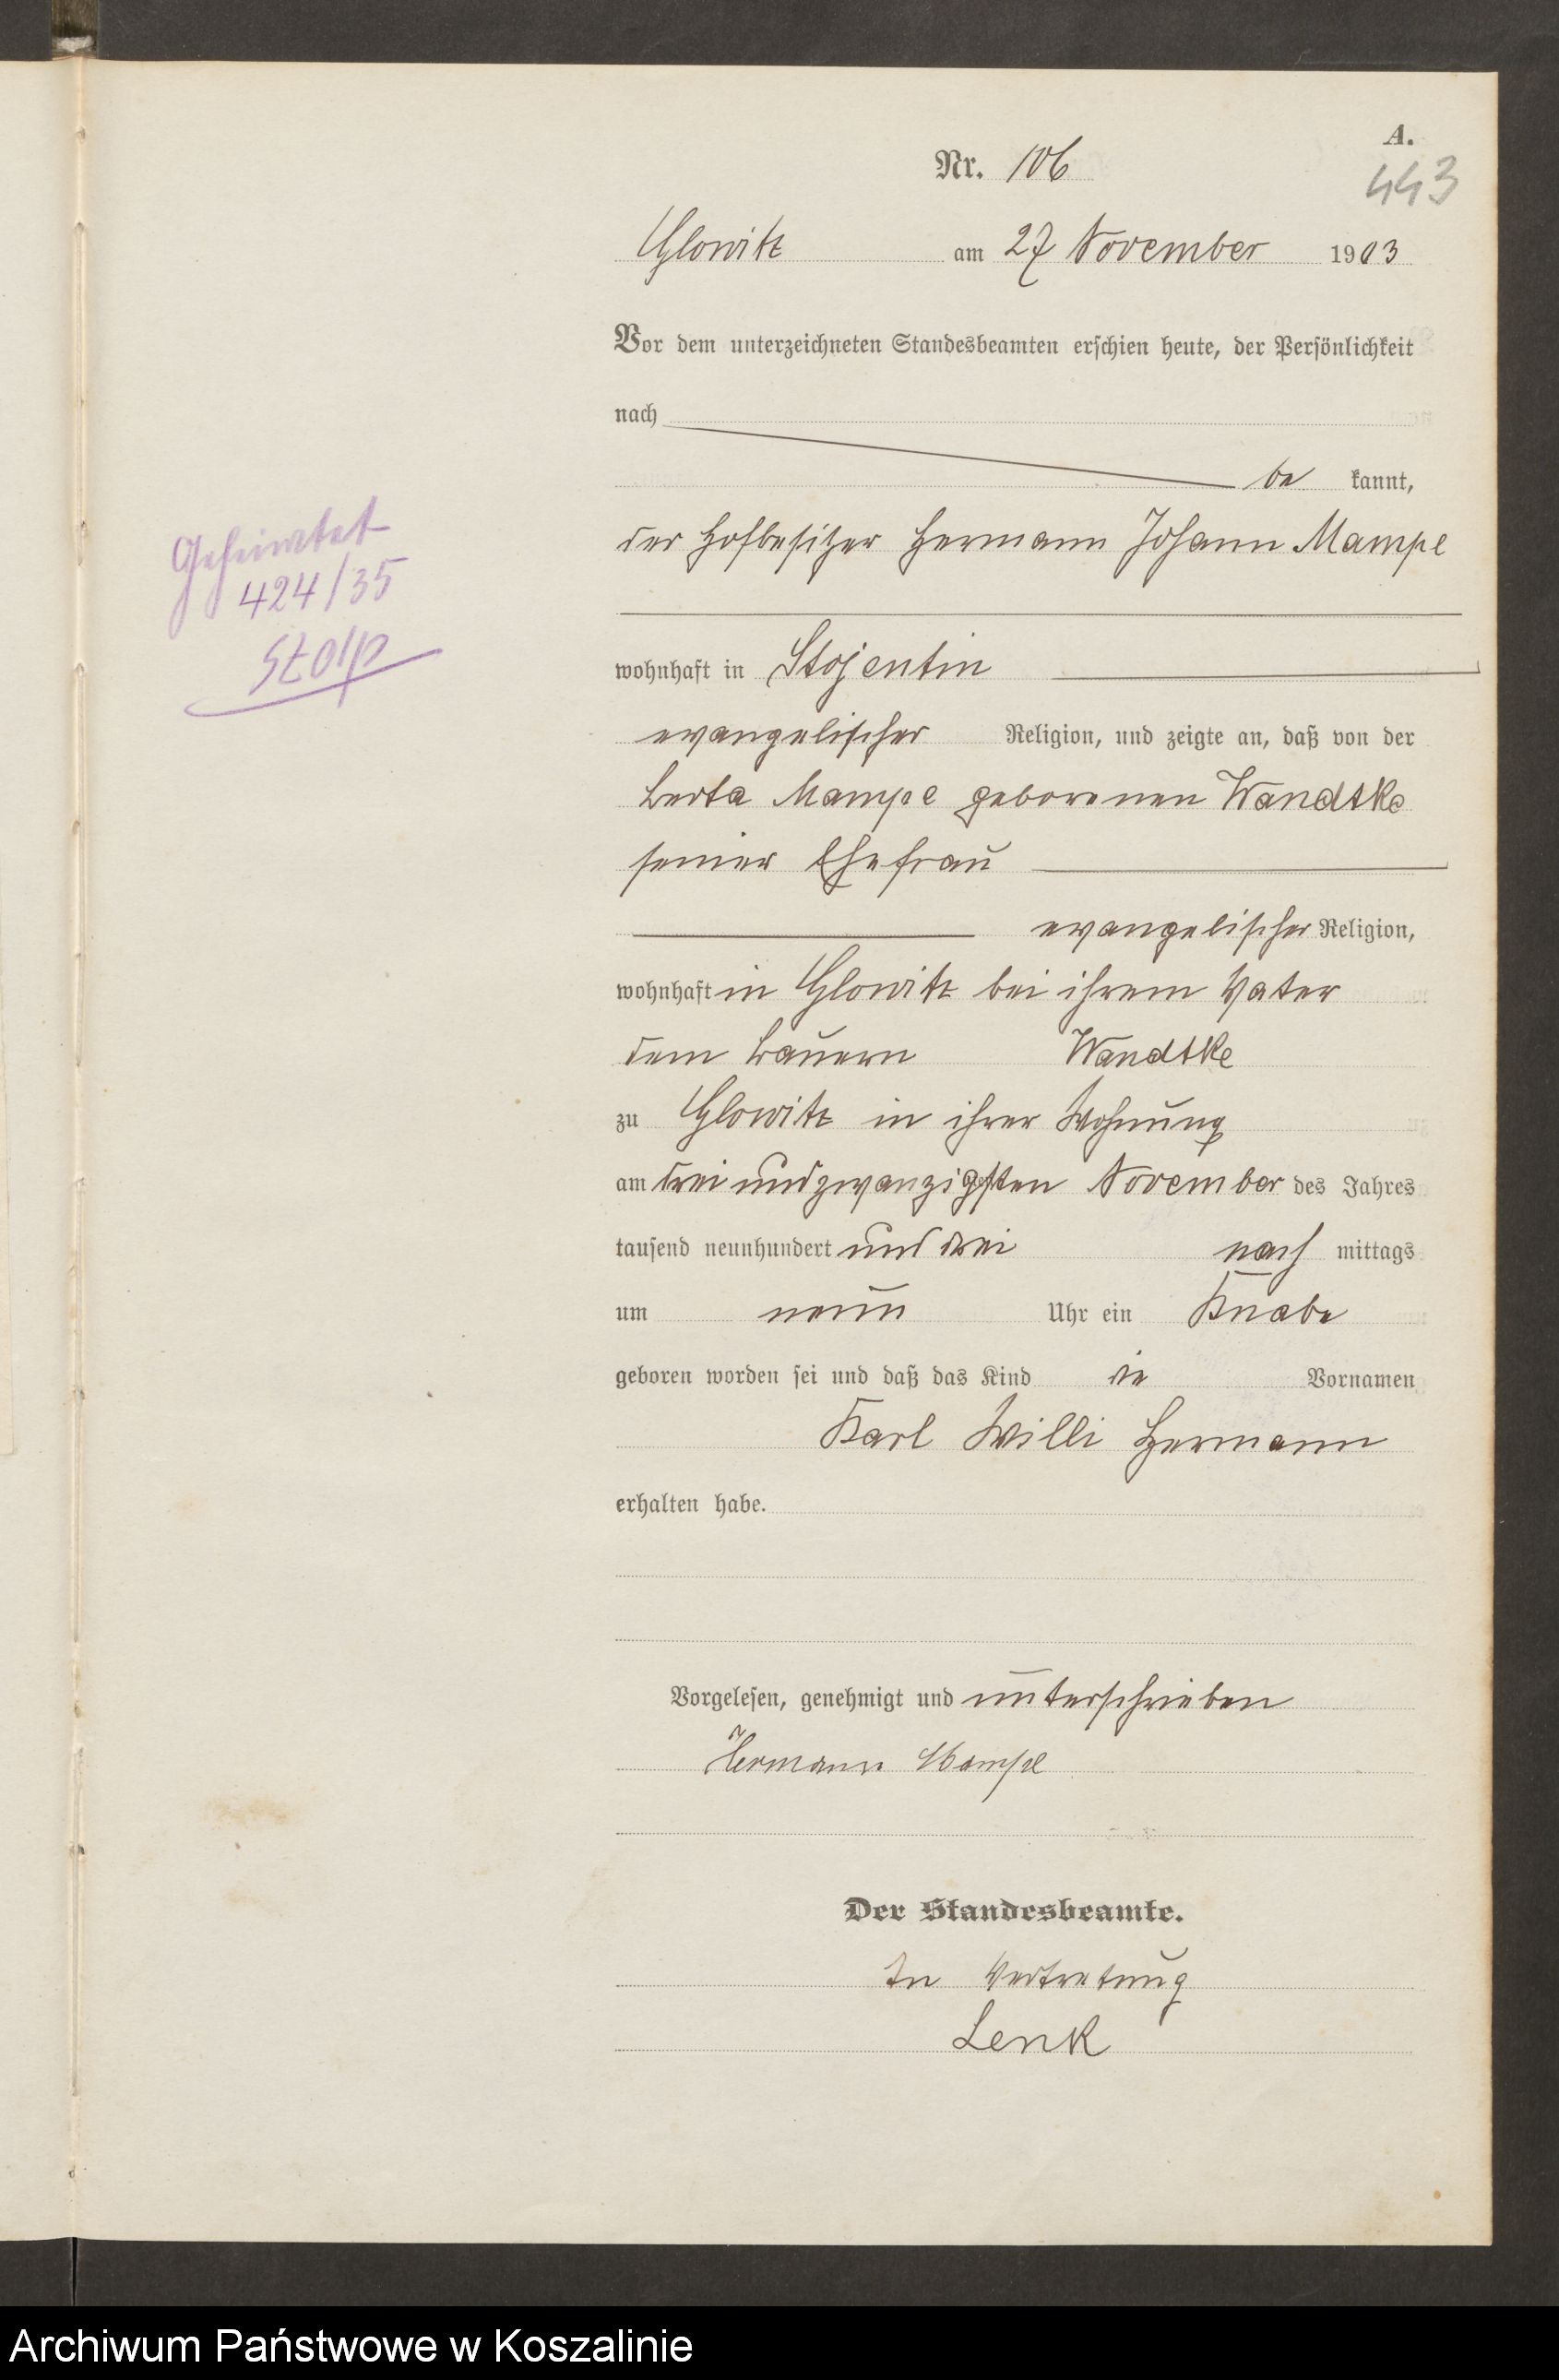 A.
Nr. 106
443
Glowitz am 27 November 1903
Vor dem unterzeichneten Standesbeamten erschien heute, der Persönlichkeit
nach
be kannt,
der Hofbesitzer Hermann Johann Mampe
Geheiratet
424/35
Stolp
wohnhaft in Stojentin
evangelischer Religion, und zeigte an, daß von der
Berta Mampe geborenen Wandtke
seiner Ehefrau
evangelischer Religion,
wohnhaft in Glowitz bei ihrem Vater
dem Bauern Wandtke
zu Glowitz in ihrer Wohnung
am dreiundzwanzigsten November des Jahres
tausend neunhundert und drei nach mittags
um neun Uhr ein Knabe
geboren worden sei und daß das Kind die Vornamen
Karl Willi Hermann
erhalten habe.
Vorgelesen, genehmigt und unterschrieben
Hermann Mampe
Der Standesbeamte.
In Vertretung
Lenk
Archiwum Państwowe w Koszalinie